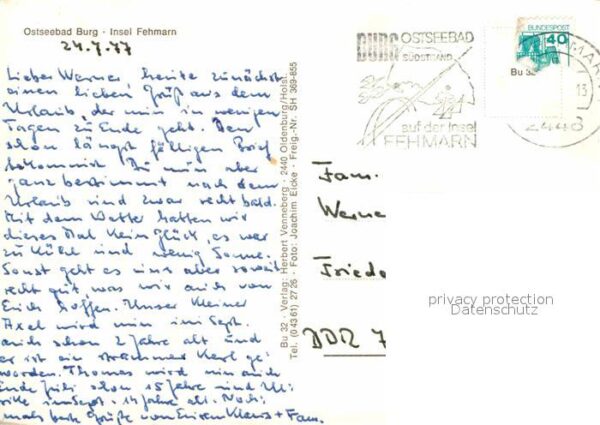 Ostseebad Burg - Insel Fehmarn
24.7.77
Lieber Werner, heute zunächst
einen lieben Gruß aus dem
Urlaub, der nun in wenigen
Tagen zu Ende geht. Den
schon längst fälligen Brief
bekommst Du nun aber
ganz bestimmt nach dem
Urlaub und zwar recht bald.
Mit dem Wetter hatten wir
dieses Mal kein Glück, es war
zu kühl und wenig Sonne.
Sonst geht es uns aber soweit
recht gut, was wir auch von
Euch hoffen. Unser kleiner
Axel wird nun im Sept.
auch schon 2 Jahre alt und
er ist ein strammer Kerl ge-
worden. Thomas wird nun auch
Ende Juli schon 15 Jahre und Ul-
rike im Sept. 14 Jahre alt. Noch-
mals beste Grüße von Klaus + Fam.
Bu 32 - Verlag: Herbert Venneberg - 2440 Oldenburg/Holst.
Tel. (0 43 61) 27 26 - Foto: Joachim Eicke - Freig.-Nr. SH 369-855
BURG OSTSEEBAD
SÜDSTRAND
auf der Insel
FEHMARN
DEUTSCHE BUNDESPOST
40
Bu 32
13
2448
Fam.
Werne
Friede
DDR 7
privacy protection
Datenschutz